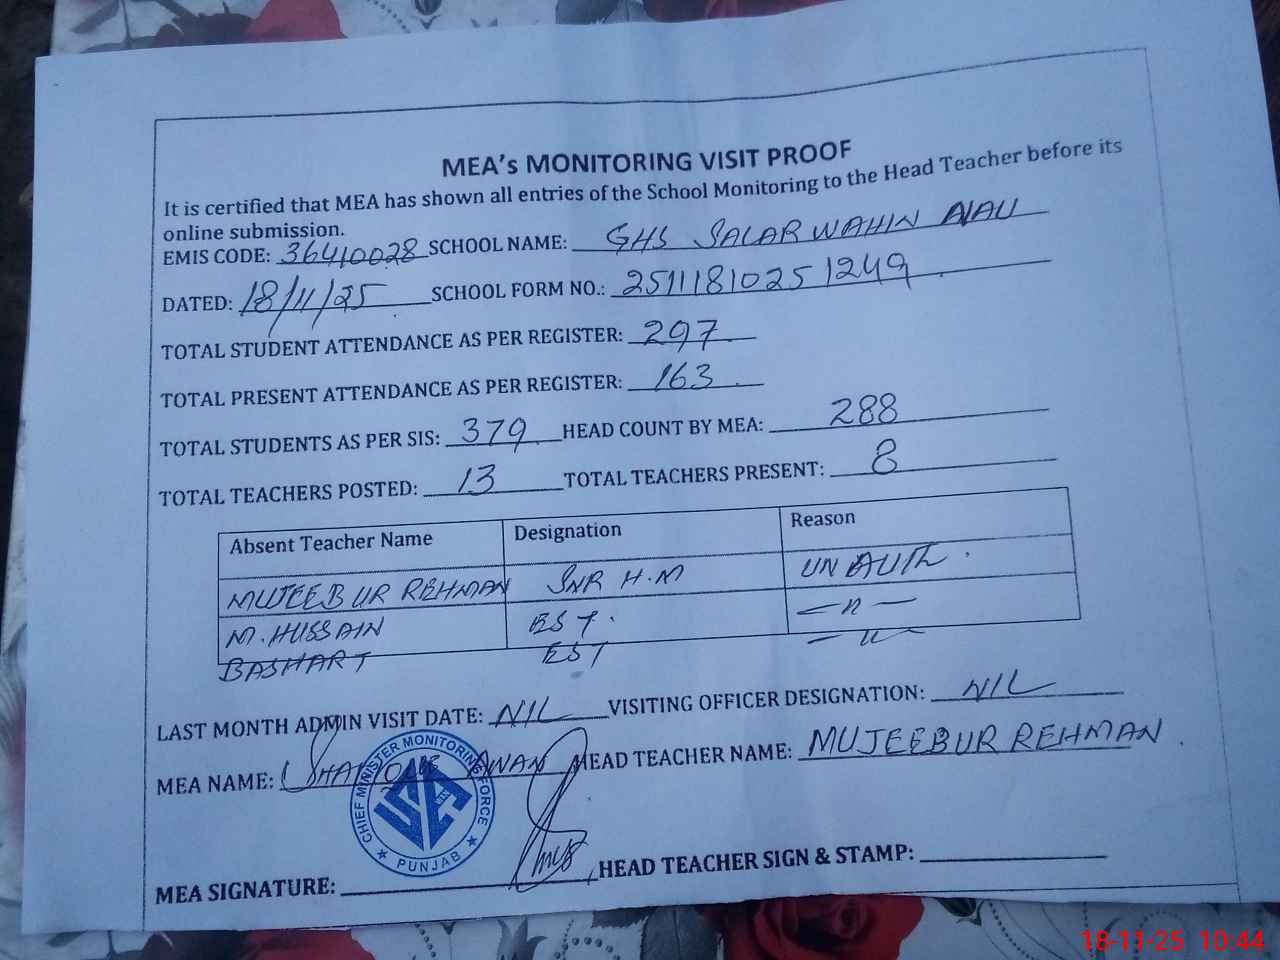 MEA's MONITORING VISIT PROOF
It is certified that MEA has shown all entries of the School Monitoring to the Head Teacher before its
online submission.
EMIS CODE: 36410028 SCHOOL NAME: GHS SALAR WAHIN NAU
DATED: 18/11/25 SCHOOL FORM NO.: 25111810251249
TOTAL STUDENT ATTENDANCE AS PER REGISTER: 297
TOTAL PRESENT ATTENDANCE AS PER REGISTER: 163
TOTAL STUDENTS AS PER SIS: 379 HEAD COUNT BY MEA: 288
TOTAL TEACHERS POSTED: 13 TOTAL TEACHERS PRESENT: 8
Absent Teacher Name Designation Reason
MUJEEBUR REHMAN SNR H.M UNAUTH.
M. HUSSAIN EST. —11—
BASHART EST —11—
LAST MONTH ADMIN VISIT DATE: NIL VISITING OFFICER DESIGNATION: NIL
MEA NAME: AWAN HEAD TEACHER NAME: MUJEEBUR REHMAN.
CHIEF MINISTER MONITORING FORCE
PUNJAB
MEA SIGNATURE: HEAD TEACHER SIGN & STAMP:
18-11-25 10:44